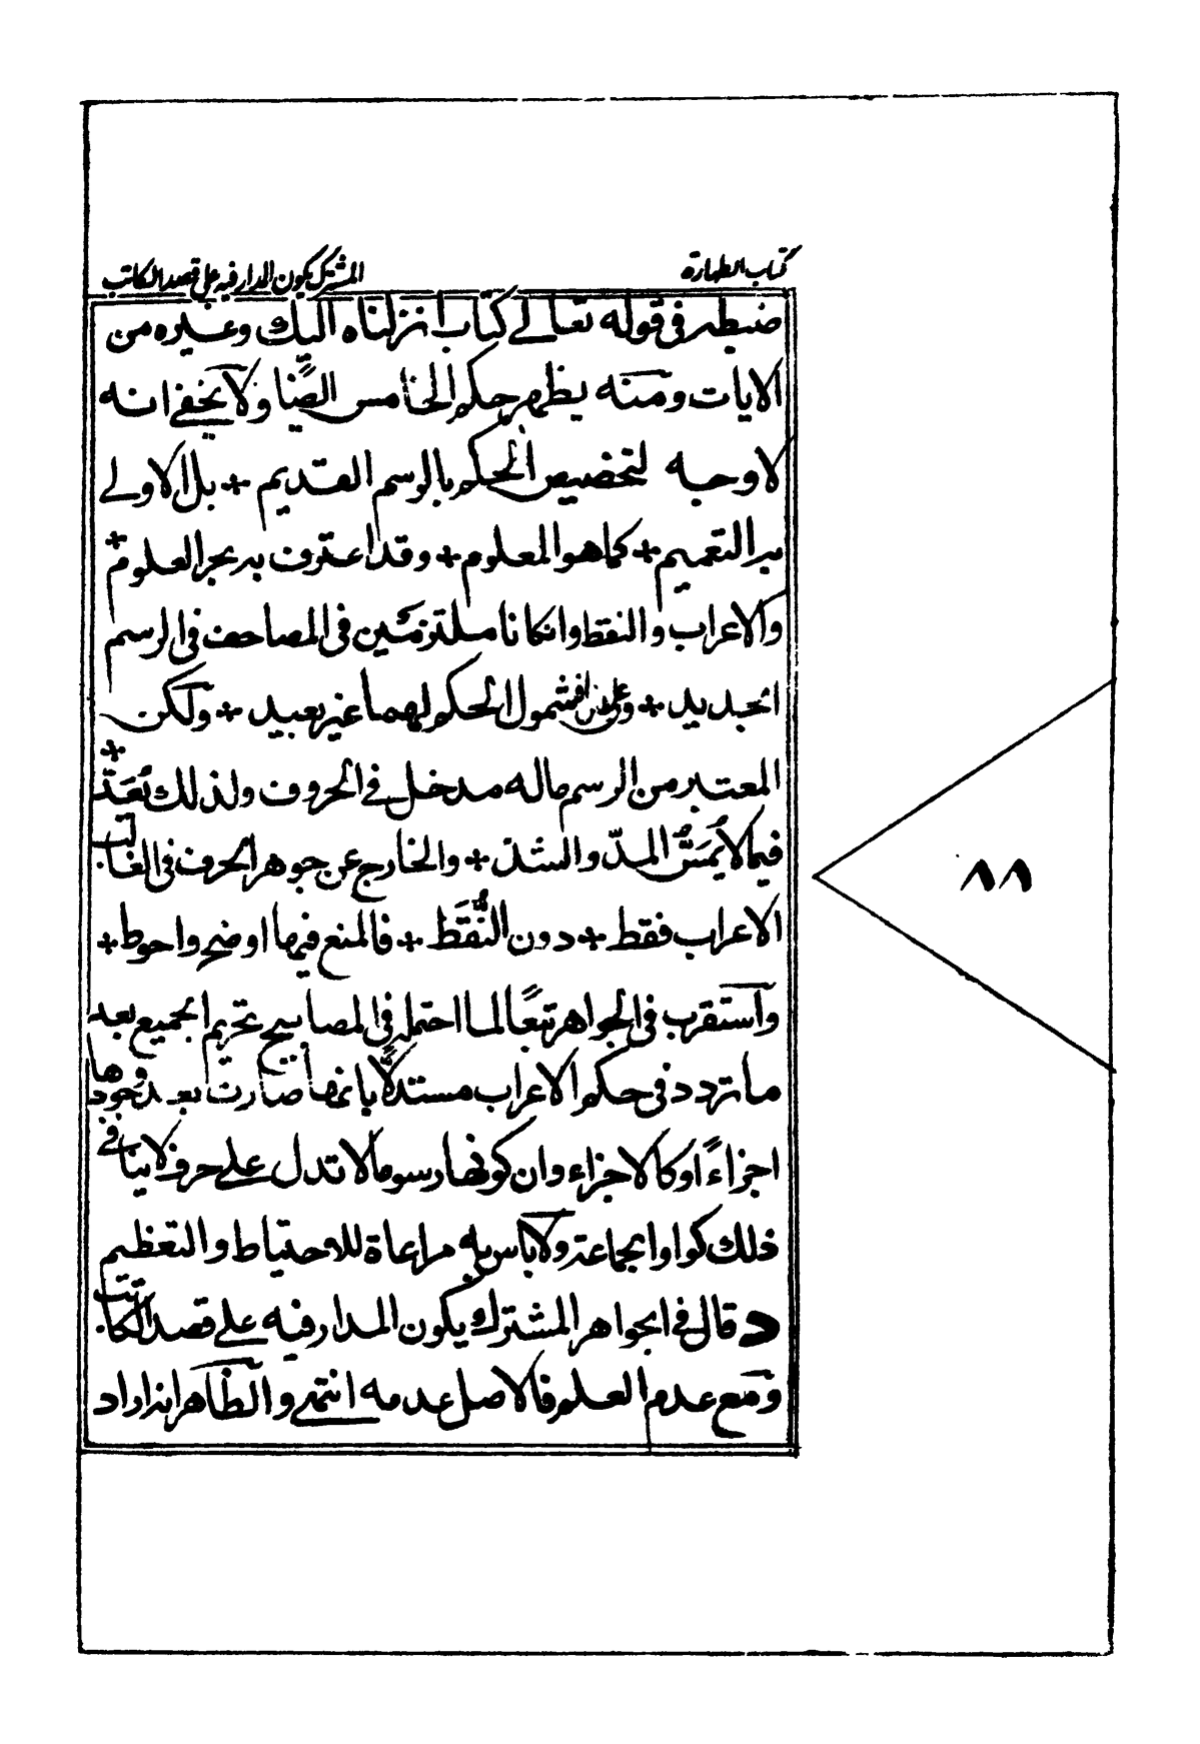 كتاب الطهارة
المشترك يكون المدار فيه على قصد الكاتب
ضبطه في قوله تعالى كتاب انزلناه اليك وغيره من
الايات ومنه يظهر حكم الخامس ايضًا ولا يخفى انه
لا وجه لتخصيص الحكم بالرسم القديم + بل الاولى
التعميم + كما هو المعلوم + وقد اعترف به بحر العلوم +
والاعراب والنقط وان كانا ملتزمين في المصاحف في الرسم
الجديد + وعلى هذا فشمول الحكم لهما غير بعيد + ولكن
المعتبر من الرسم ماله مدخل في الحروف ولذلك نُعَدّ +
فيما لا يُمَسّ المدّ والشد + والخارج عن جوهر الحرف في الغالب
الاعراب فقط + دون النُّقَط + فالمنع فيها اوضح واحوط +
واستقرب في الجواهر تبعًا لما احتمله في المصابيح تحريم الجميع بعد
ما تردد في حكم الاعراب مستدلًا بانها صارت بعد وجودها
اجزاءً او كالاجزاء وان كونها رسوما لا تدل على حرف لا ينافي
ذلك كواو الجماعة ولا باس به مراعاة للاحتياط والتعظيم
د قال في الجواهر المشترك يكون المدار فيه على قصد الكاتب
ومع عدم العلم فالاصل عدمه انتهى والظاهر انه اراد
٨٨